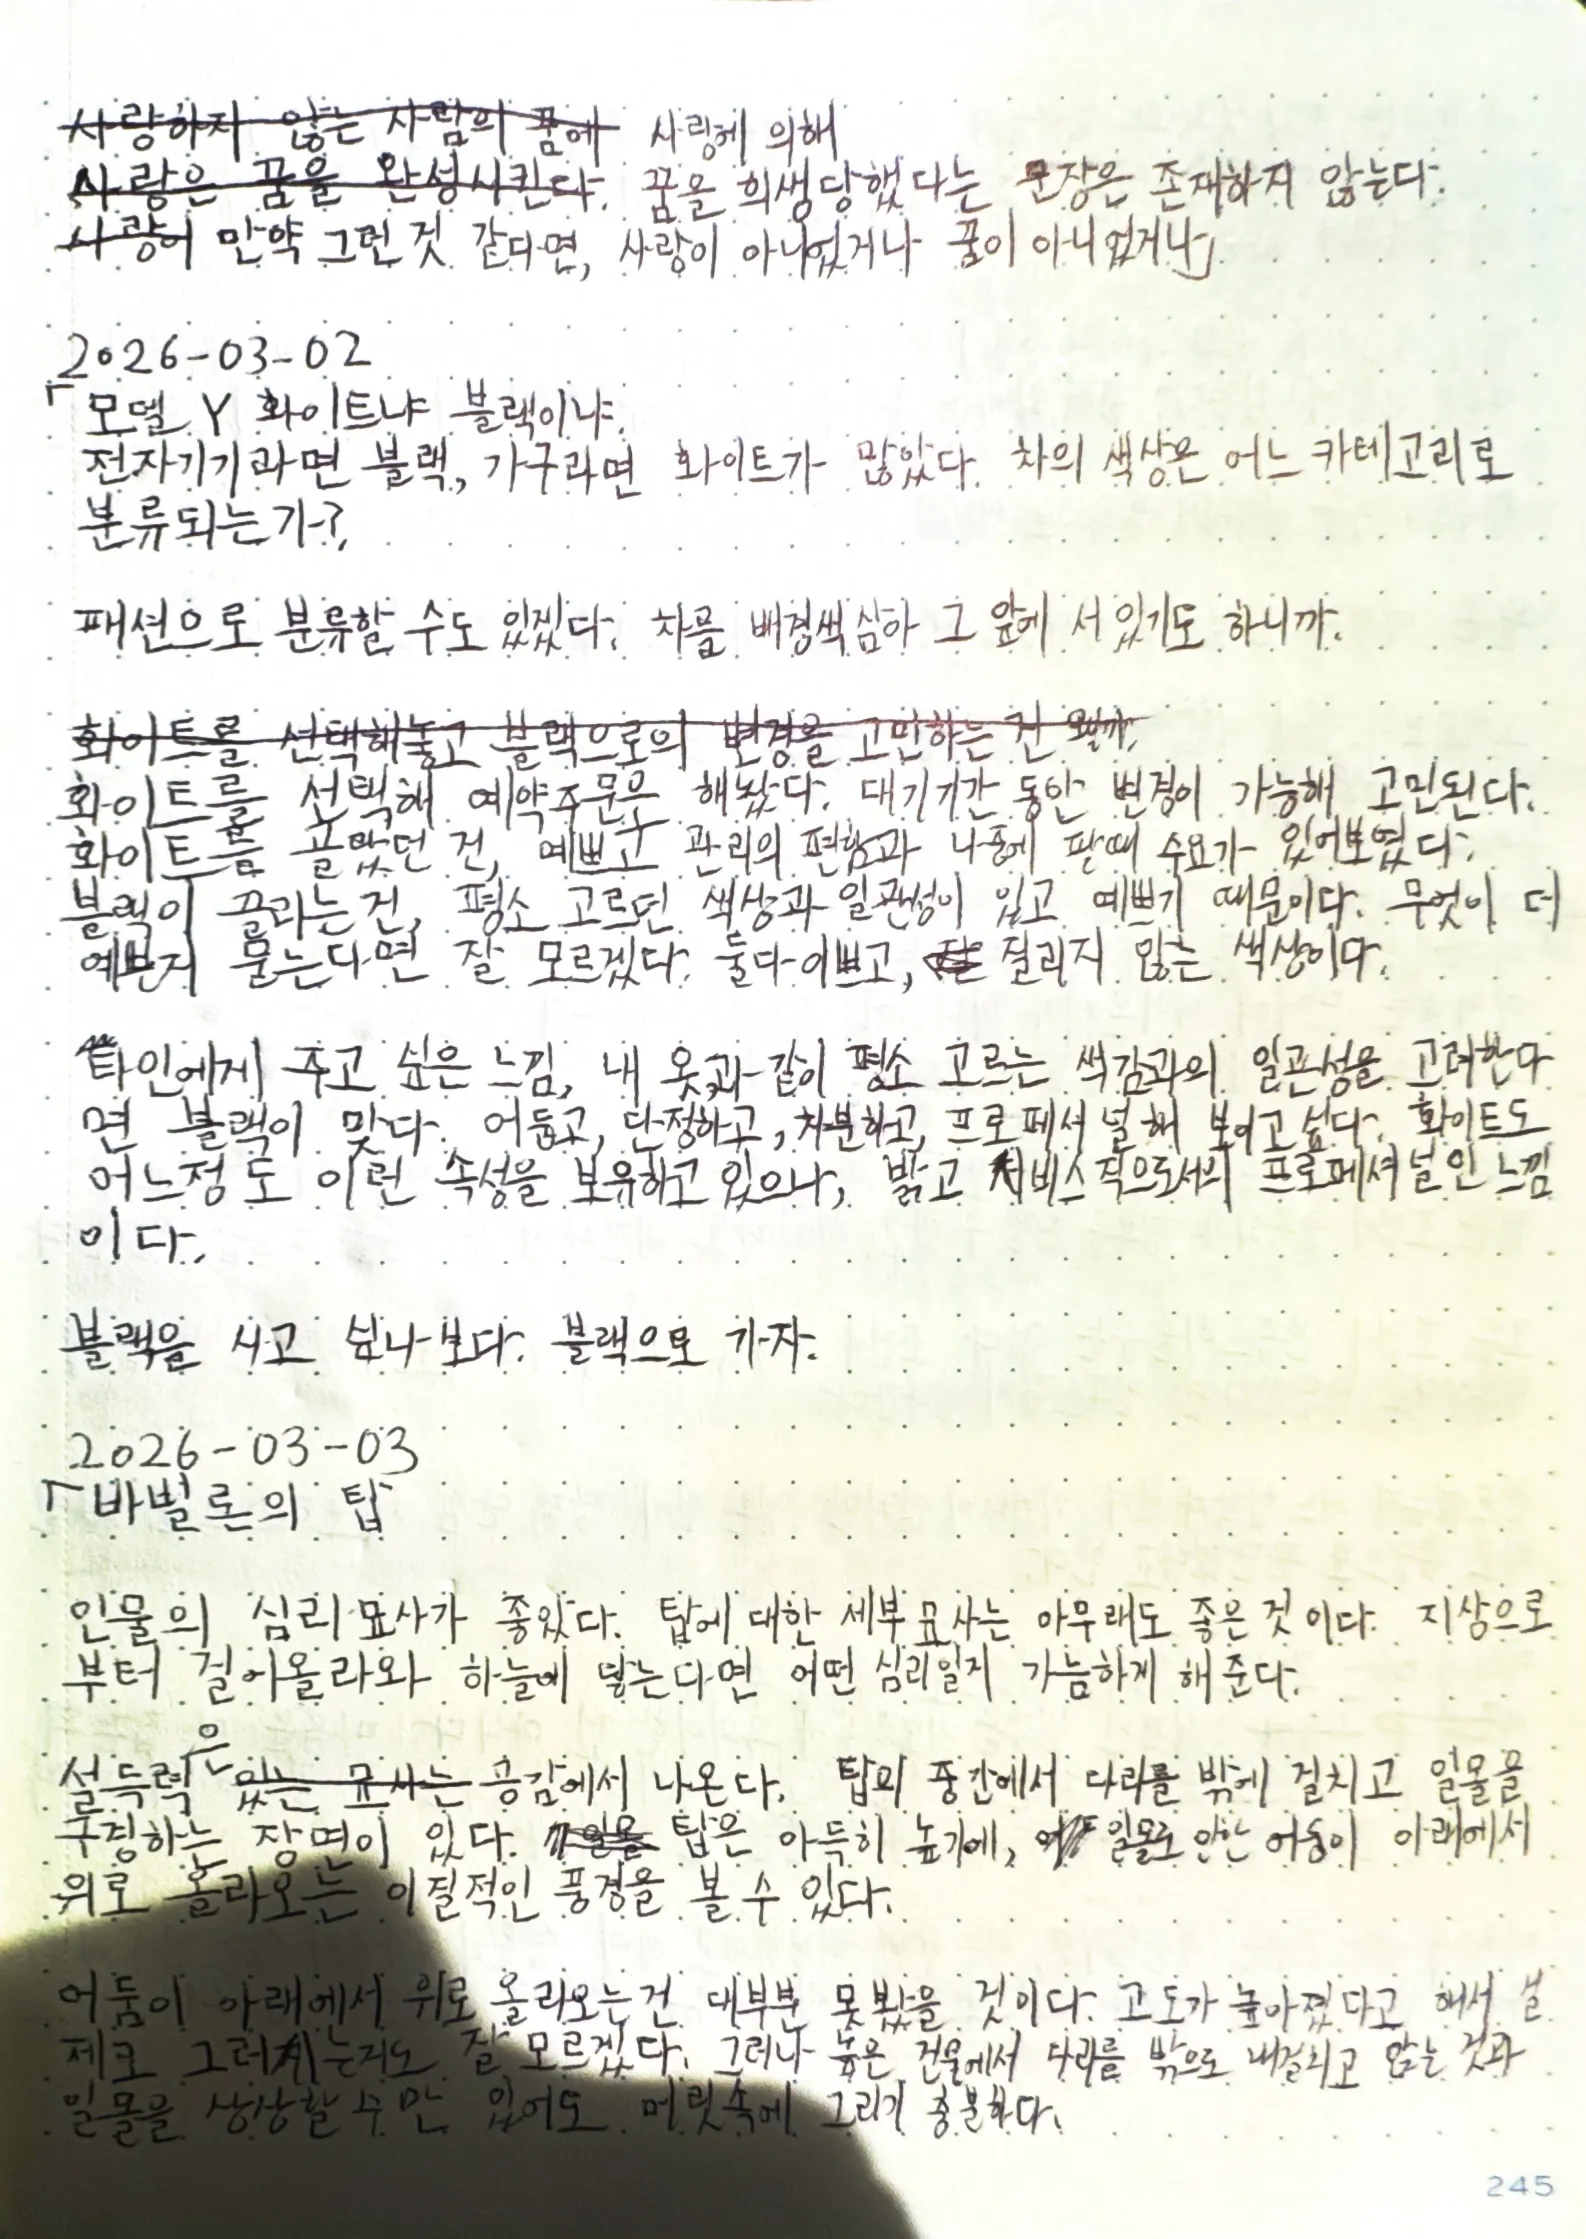 사랑하지 않는 사람의 꿈에 사랑에 의해
사랑은 꿈을 완성시킨다. 꿈을 희생당했다는 문장은 존재하지 않는다.
사랑이 만약 그런 것 같다면, 사랑이 아니었거나 꿈이 아니었거나」
2026-03-02
「모델 Y 화이트냐 블랙이냐.
전자기기라면 블랙, 가구라면 화이트가 많았다. 차의 색상은 어느 카테고리로
분류되는가?
패션으로 분류할 수도 있겠다. 차를 배경색 삼아 그 앞에 서 있기도 하니까.
화이트를 선택해놓고 블랙으로의 변경을 고민하는 건 왜일까.
화이트를 선택해 예약주문을 해놨다. 대기기간 동안 변경이 가능해 고민된다.
화이트를 골랐던 건, 예쁘고 관리의 편함과 나중에 팔때 수요가 있어보였다.
블랙이 끌리는 건, 평소 고르던 색상과 일관성이 있고 예쁘기 때문이다. 무엇이 더
예쁜지 묻는다면 잘 모르겠다. 둘다 이쁘고, 질리지 않는 색상이다.
타인에게 주고 싶은 느낌, 내 옷과 같이 평소 고르는 색감과의 일관성을 고려한다
면 블랙이 맞다. 어둡고, 단정하고, 차분하고, 프로페셔널해 보이고 싶다. 화이트도
어느정도 이런 속성을 보유하고 있으나, 밝고 서비스적으로서의 프로페셔널인 느낌
이다.
블랙을 사고 싶나보다. 블랙으로 가자.
2026-03-03
「바빌론의 탑
인물의 심리 묘사가 좋았다. 탑에 대한 세부 묘사는 아무래도 좋은 것이다. 지상으로
부터 걸어올라와 하늘에 닿는다면 어떤 심리일지 가늠하게 해준다.
은
설득력 있는 묘사는 공감에서 나온다. 탑의 중간에서 다리를 밖에 걸치고 일몰을
구경하는 장면이 있다. 탑은 아득히 높기에, 일몰로 인한 어둠이 아래에서
위로 올라오는 이질적인 풍경을 볼 수 있다.
어둠이 아래에서 위로 올라오는 건 대부분 못봤을 것이다. 고도가 높아졌다고 해서 실
제로 그러한지는 잘 모르겠다. 그러나 높은 건물에서 다리를 밖으로 내걸치고 앉는 것과
일몰을 상상할 수만 있어도 머릿속에 그리기 충분하다.
245